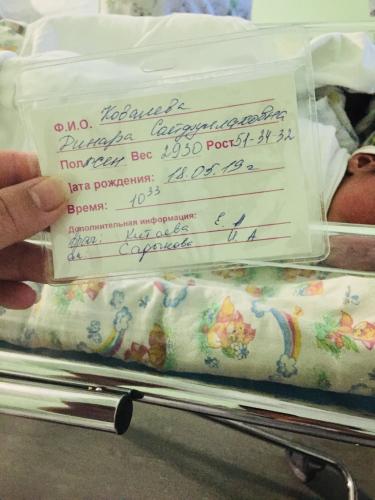 Ф.И.О. Ковалева
Динара
Пол жен Вес 2930 Рост 51-34-32
Дата рождения: 18.05.19 г
Время: 10 33
Дополнительная информация:
врач: Китаева Е А
И А